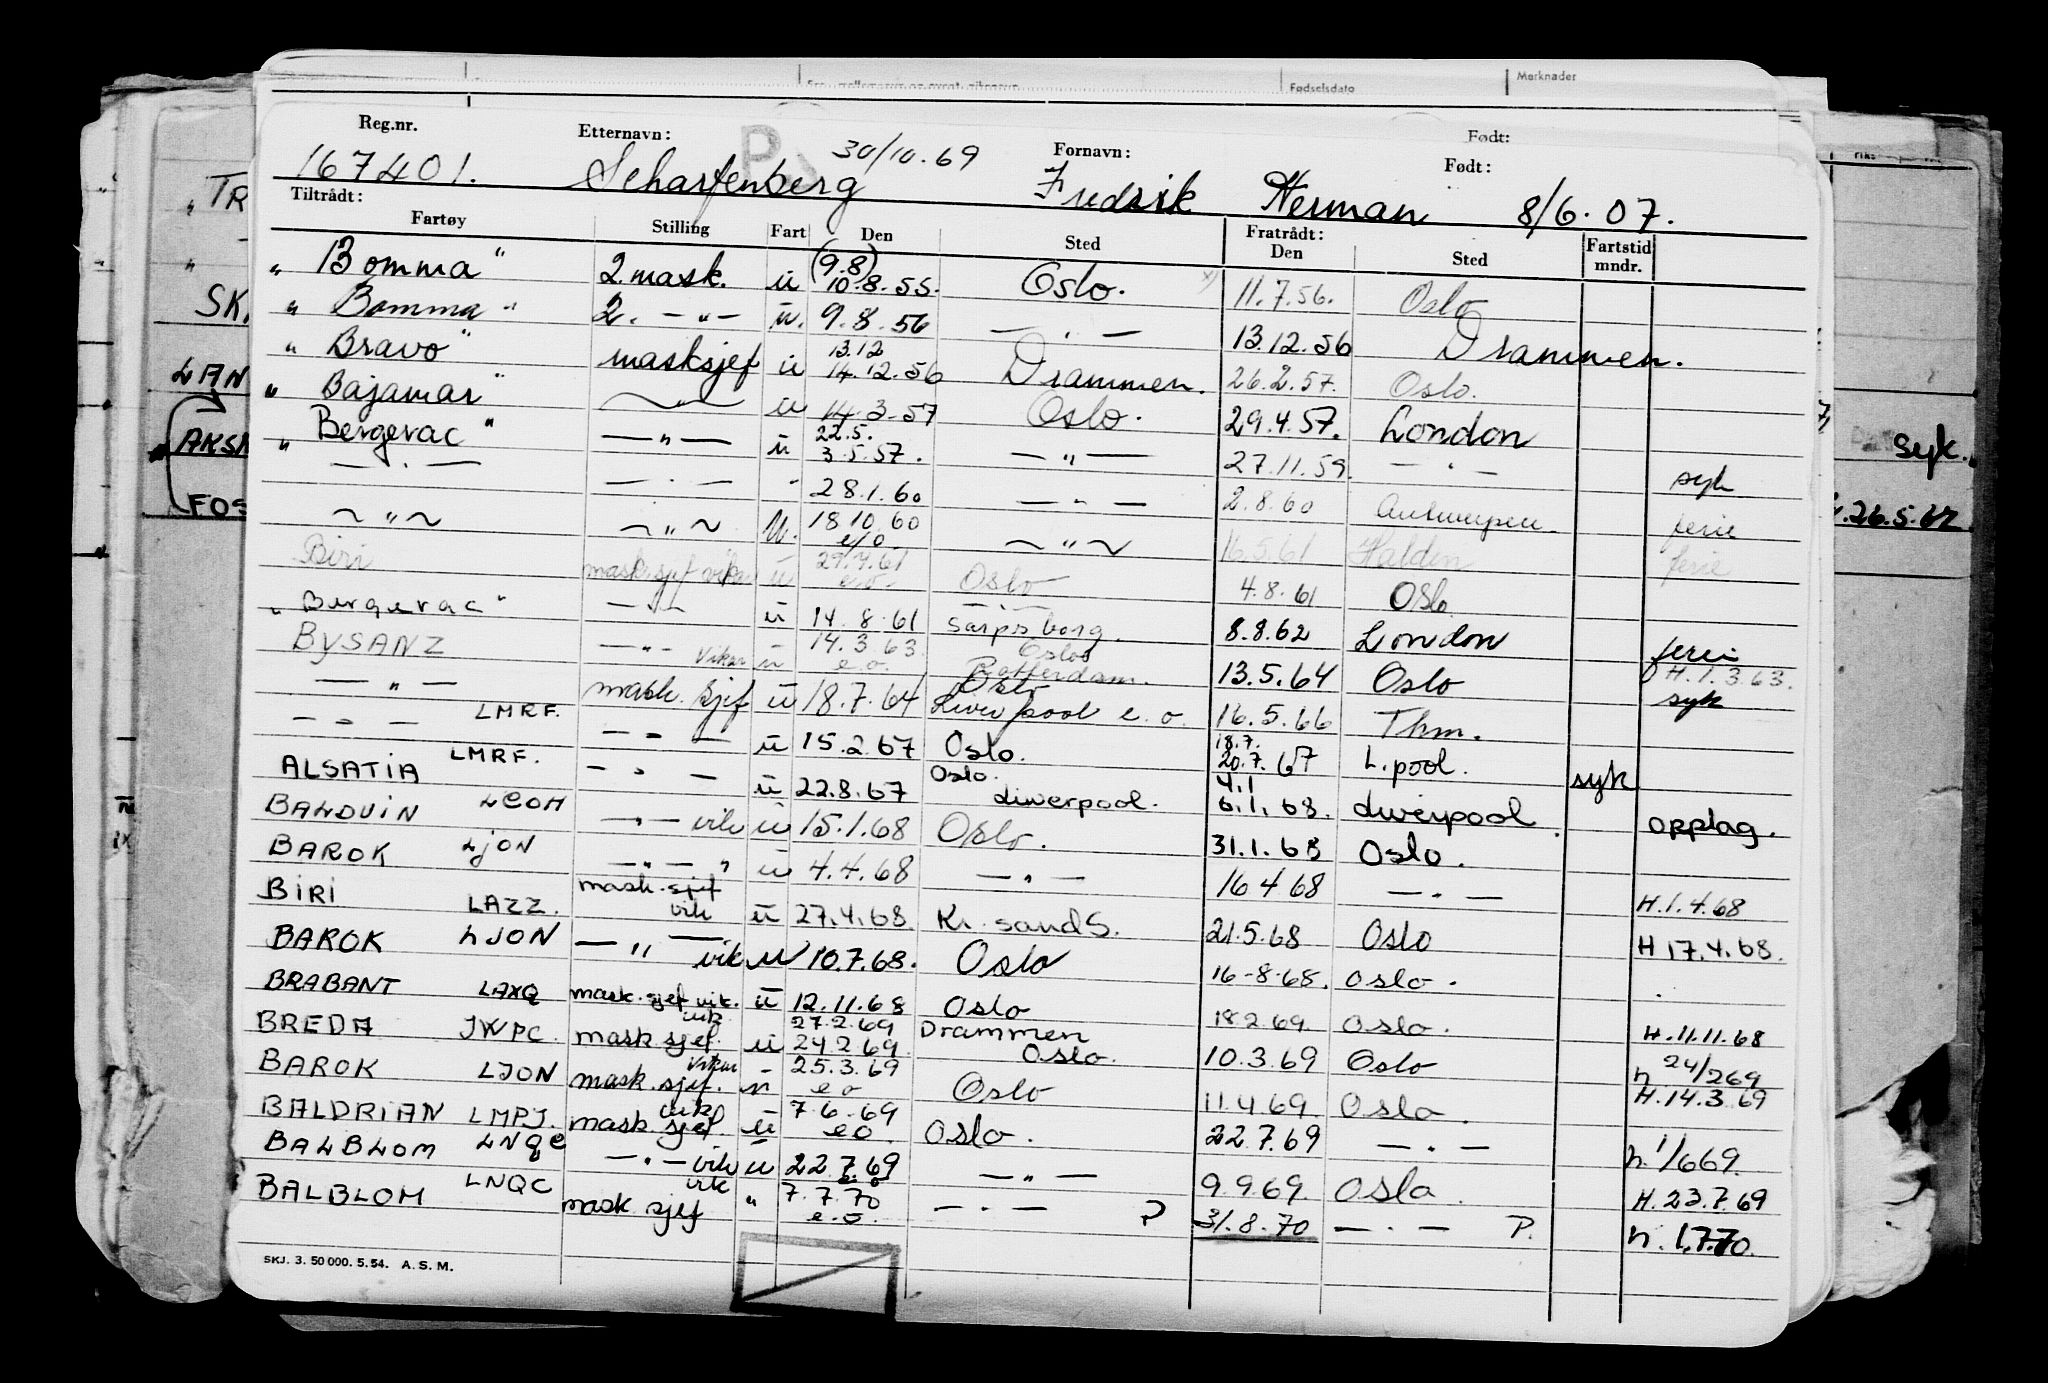 Merknader
Fødselsdato
Reg.nr. Etternavn: 30/10.69 Fornavn: Født:
Født:
167401. Scharfenberg Fredrik Herman 8/6.07.
Tiltrådt: Fratrådt:
Fartøy Stilling Fart Den Sted Den Sted Fartstid mndr.
" Bomma " 2.mask. u (9.8) 10.8.55. Oslo. x) 11.7.56. Oslo
" Bomma " 2. — " — u. 9.8.56 — " — 13.12.56 Drammen.
" Bravo " masksjef u 13.12 14.12.56 Drammen. 26.2.57. Oslo.
" Bajamar " — " — u 14.3.57 Oslo. 29.4.57. London
" Bergerac " — " — u 22.5. 3.5.57. — " — 27.11.59. — " — syk
— " — — " — " 28.1.60 — " — 2.8.60 Antwerpen. ferie
— " — — " — u. 18.10.60 e/o — " — 16.5.61 Halden ferie
Biri mask.sjef vikar u 29.7.61 e.o. Oslo 4.8.61 Oslo
" Bergerac " — " — u 14.8.61 Sarpsborg. 8.8.62 London ferie
BYSANZ — " — vikar u 14.3.63 e.o. Oslo Rotterdam. 13.5.64 Oslo H.1.3.63. syk
— " — mask. sjef u 18.7.64 Oslo Liverpool e.o. 16.5.66 Thm.
— " — LMRF. — " — u 15.2.67 Oslo. 18.7. 20.7.67 L.pool. syk
ALSATIA LMRF. — " — u 22.8.67 Oslo. Liverpool. 4.1 6.1.68. Liverpool. opplag.
BALDUIN LEOH — " — vik u 15.1.68 Oslo. 31.1.68 Oslo.
BAROK LJON — " — " u 4.4.68 — " — 16 4 68 — " — H.1.4.68
BIRI LAZZ. mask.sjef vik u 27.4.68. Kr.sand S. 21.5.68 Oslo H 17.4.68.
BAROK LJON — " — vik u 10.7.68. Oslo 16-8-68. Oslo.
BRABANT LAXQ mask.sjef vik. u 12.11.68 Oslo 18 2 69. Oslo. H.11.11.68
BREDA JWPC. mask sjef. vik u 27.2.69 24 2 69. Drammen Oslo. 10.3.69 Oslo h 24/269
BAROK LJON mask.sjef. vikar u 25.3.69 e o Oslo 11.4 69 Oslo. H.14.3.69
BALDRIAN LMPJ. mask sjef. vik u 7.6.69 e o Oslo. 22.7.69 — " — h.1/669.
BALBLOM LNQC — " — vik u 22.7.69 — " — 9.9 69. Oslo. H.23.7.69
BALBLOM LNQC mask sjef vik " 7.7.70 e.o. — " — P 31.8.70 — " — P. h.1.7.70.
SKJ. 3. 50 000. 5. 54. A. S. M.
" TR
SK
LAN
AKSN
FOS
syk.
26.5.62